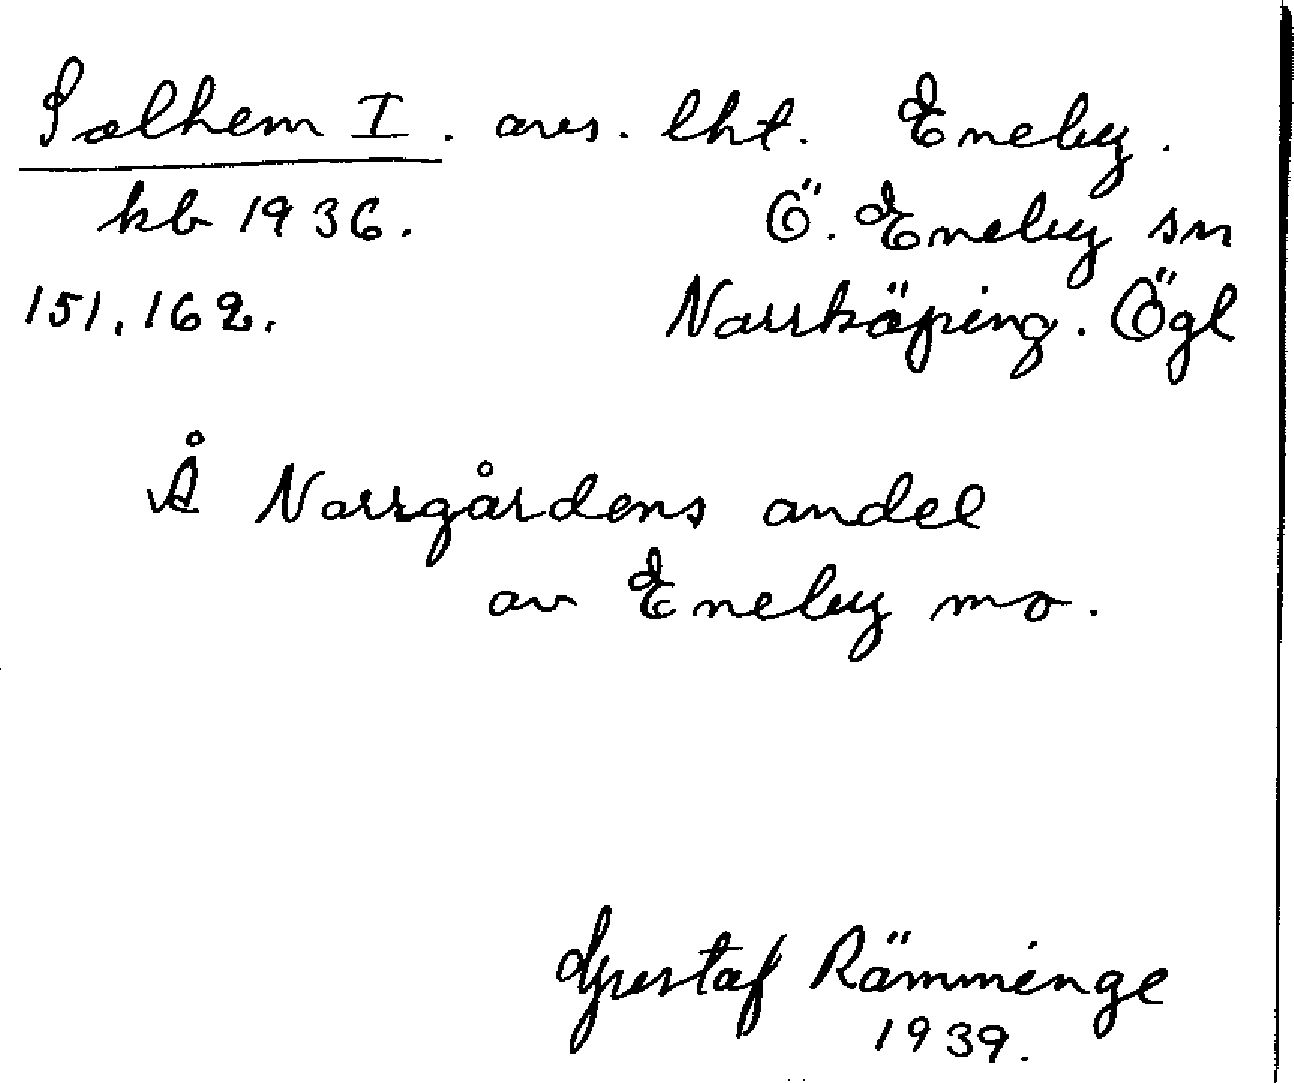 Solhem I. avs. lht. Eneby.
kb 1936. Ö. Eneby sn
151, 162. Norrköping. Ögl
Å Norrgårdens andel
av Eneby mo.
Gustaf Rämminge
1939.